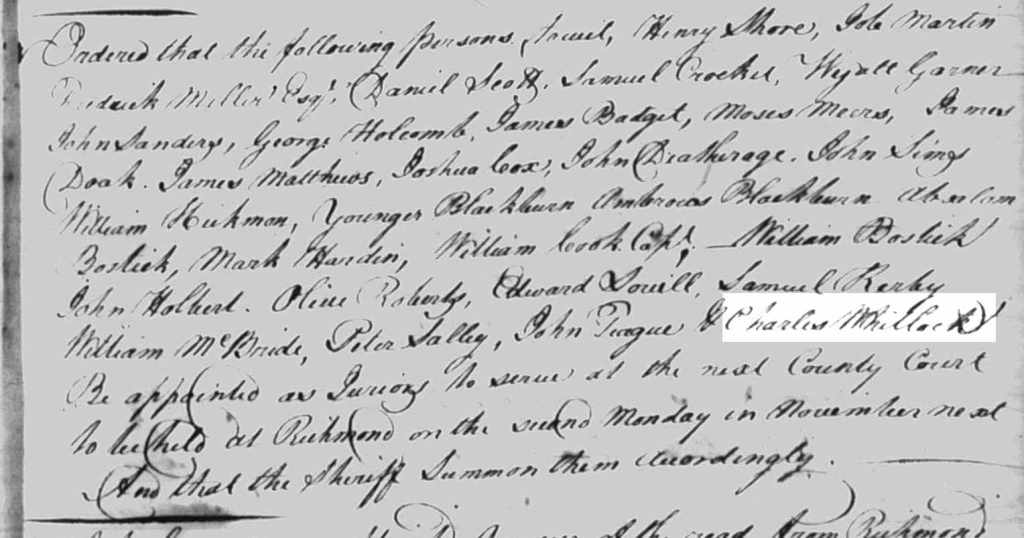 Ordered that the following persons, towit, Henry Shore, Job Martin
Fredrick Miller Esqr, Daniel Scott, Samuel Crocket, Wyatt Garner
John Sanders, George Holcomb, James Badget, Moses Meers, James
Doak. James Matthews, Joshua Cox, John Deatherage. John Sims
William Hickman, Younger Blackburn Ambrous Blackburn Absalom
Bostick, Mark Hardin, William Cook Capt; William Bostick
John Holbert. Olive Roberts, Edward Lovill, Samuel Kerby
William McBride, Peter Salley, John Teague & Charles Whitlock
Be appointed as Jurions to serve at the next County Court
to be held at Richmond on the second Monday in November next
And that the Sheriff Summon them accordingly.
of the road from Richmond